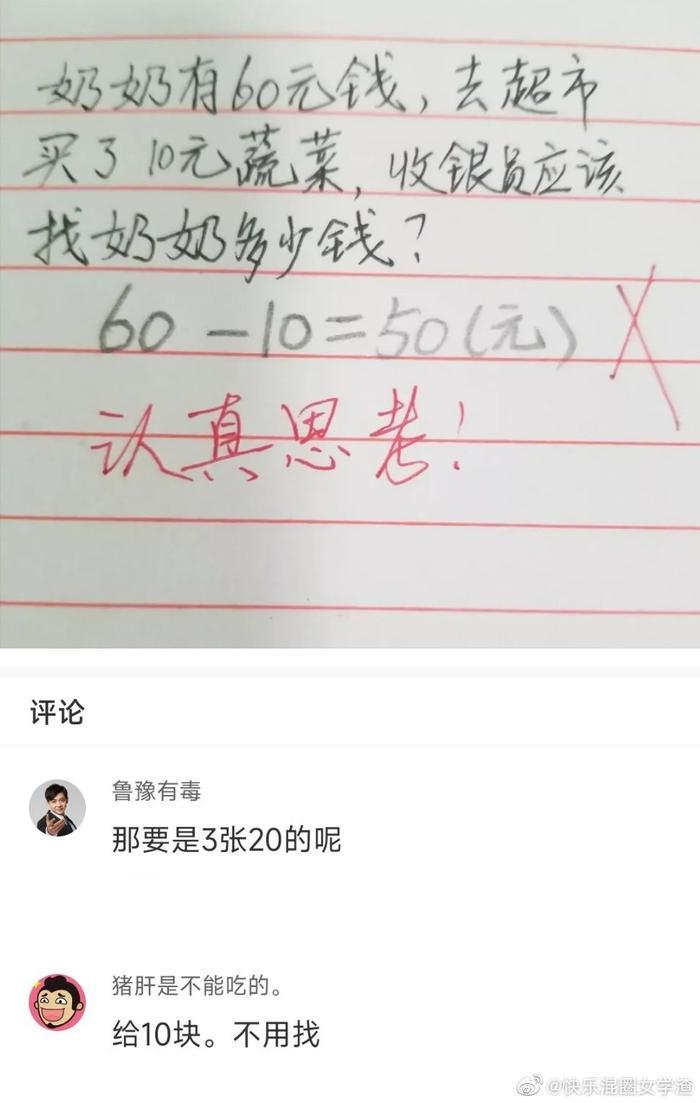 奶奶有60元钱，去超市
买了10元蔬菜，收银员应该
找奶奶多少钱？
60-10=50(元)
认真思考！
评论
鲁豫有毒
那要是3张20的呢
猪肝是不能吃的。
给10块。不用找
@快乐混圈女学渣